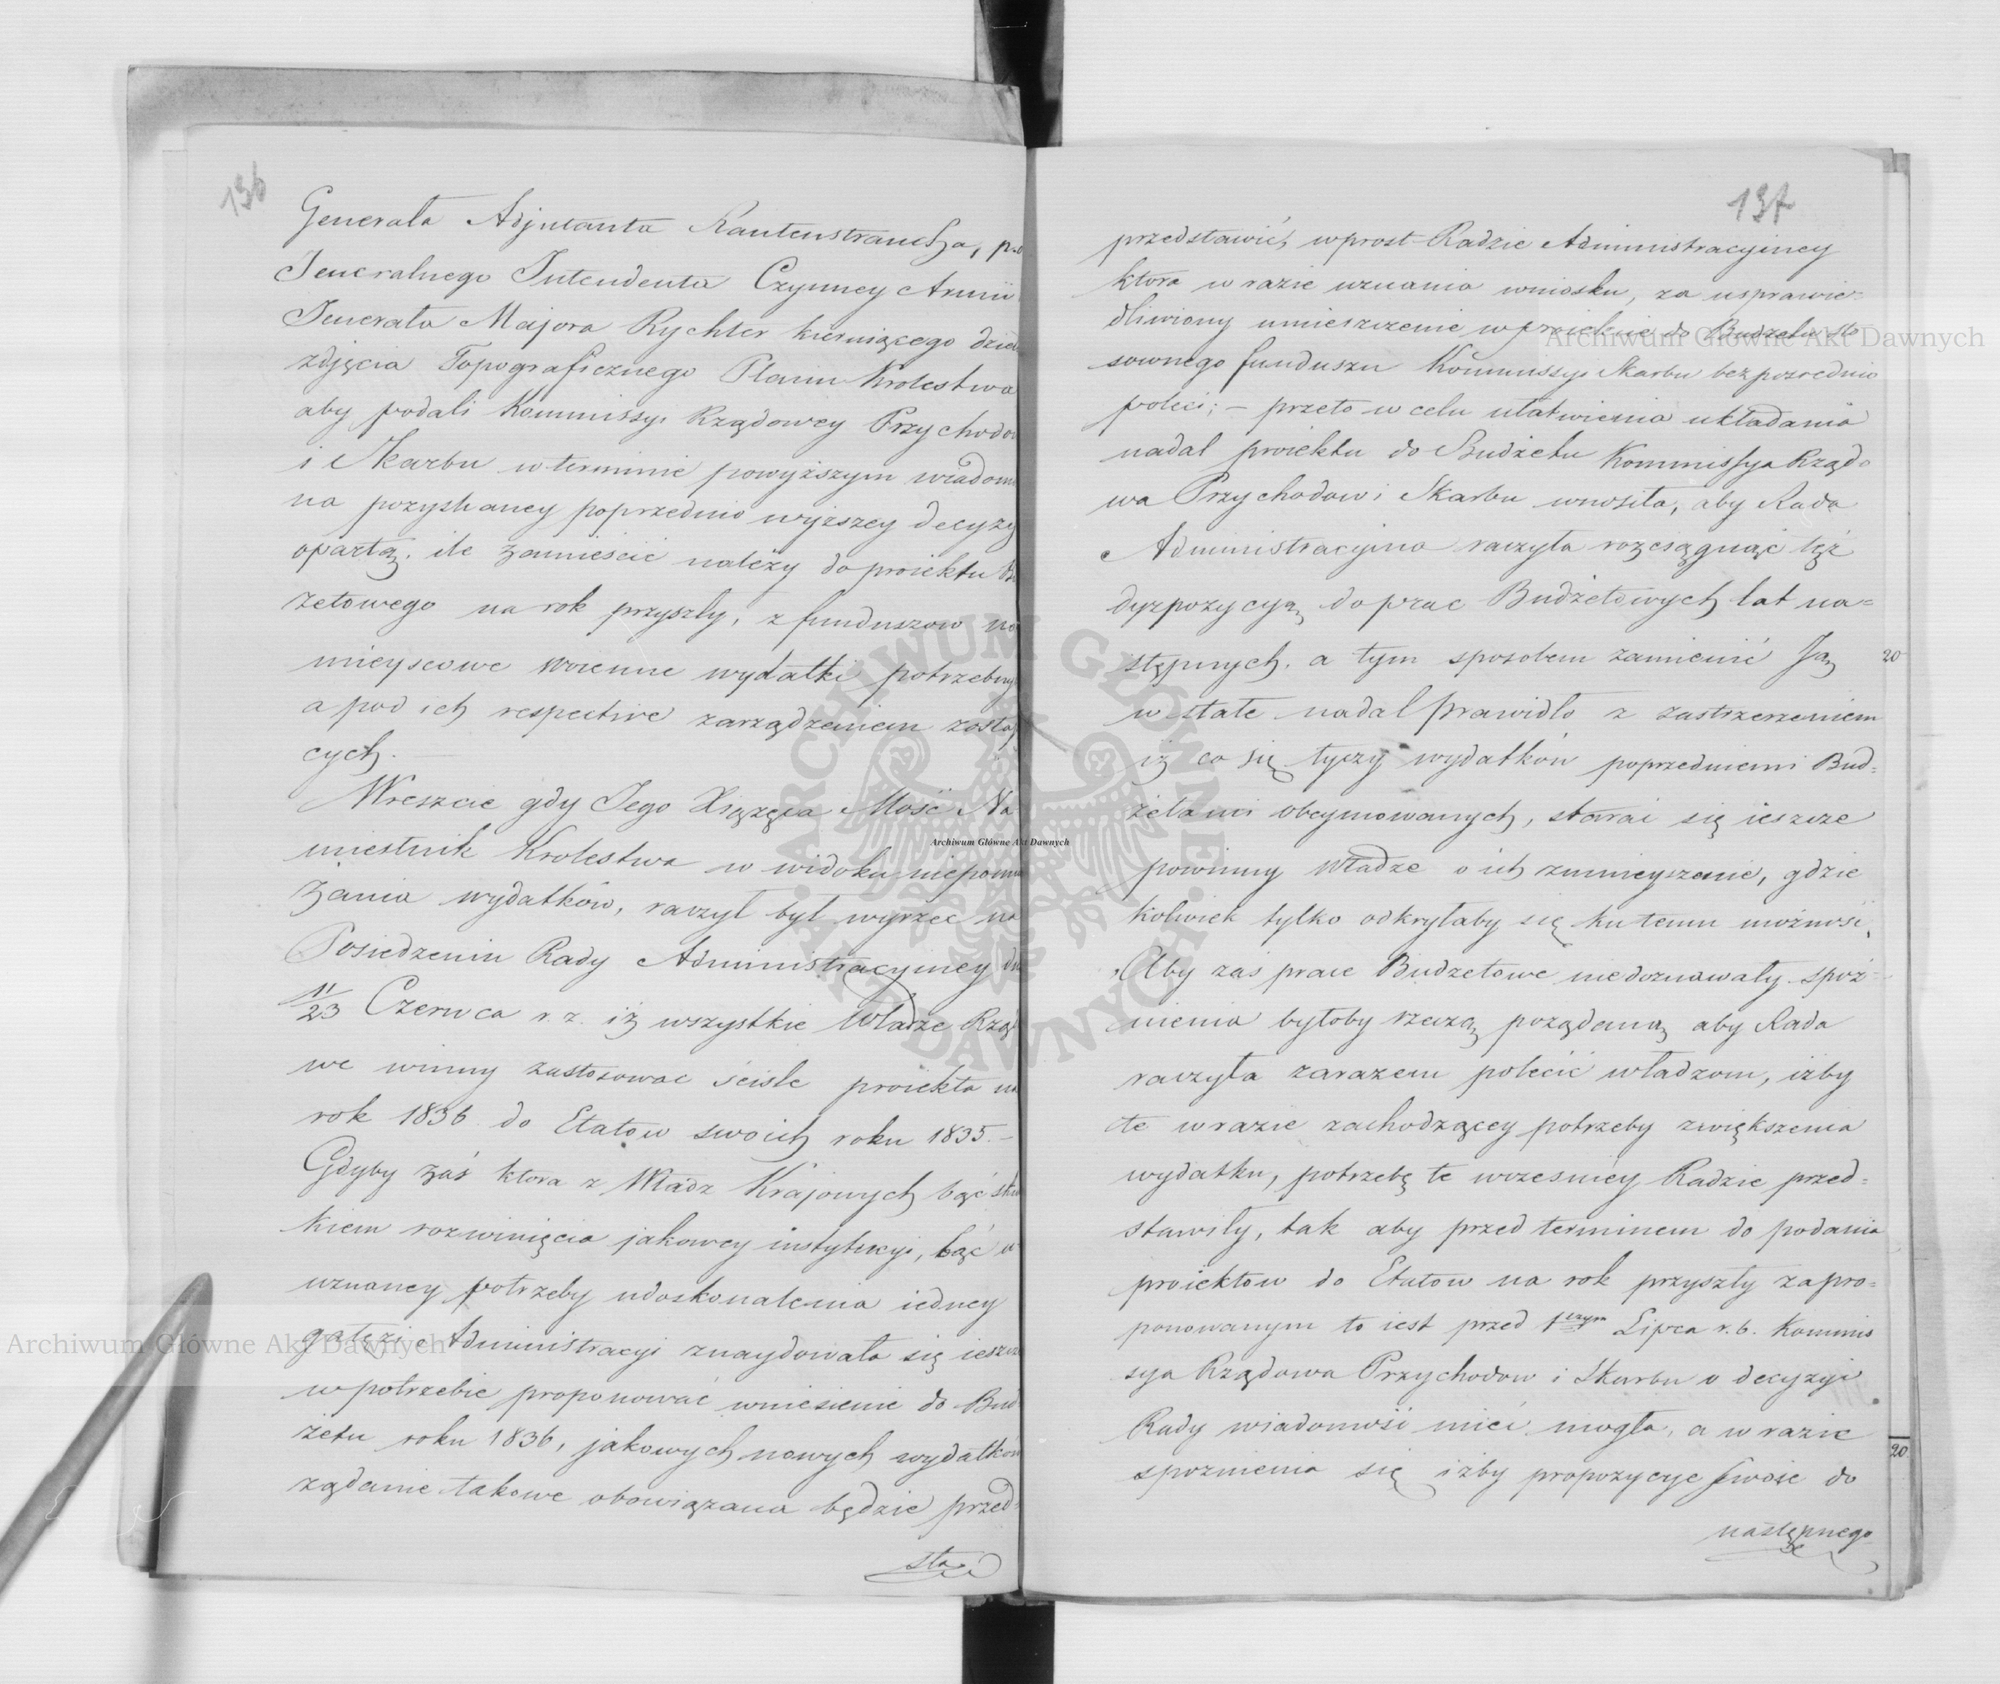 136
Generała Adjutanta Rautenstraucha, p.o
Jeneralnego Intendenta Czynney Armii
Jenerała Majora Rychter kieruiącego dzieł
zdjęcia Topograficznego Planu Krolestwa
aby podali Kommissyi Rządowey Przychodow
i Skarbu w terminie powyższym wiadom
na pozyskaney poprzednio wyższey decyzyi
opartą, ile zamieścić należy do proiektu Bu
żetowego na rok przyszły, z funduszow na
mieyscowe woienne wydatki potrzebny
a pod ich respective zarządzeniem zostaj
cych.
Wreszcie gdy Jego Xiążęca Mość Na
miestnik Krolestwa w widoku niepomna
żania wydatków, raczył był wyrzec na
Posiedzeniu Rady Administracyiney dn
11/23 Czerwca r. z. iż wszystkie Władze Rząd
we winny zastosować ściśle proiekta na
rok 1836 do Etatow swoich roku 1835. –
Gdyby zaś ktora z Władz Krajowych bąć sku
kiem rozwinięcia jakowey instytucyi, bąć w
uznaney potrzeby udoskonalenia iedney
gałęzi Administracyi znaydowała się ieszcze
w potrzebie proponować wniesienie do Bud
żetu roku 1836, jakowych nowych wydatków
żądanie takowe obowiązana będzie przed=
stawić
137
przedstawić, wprost Radzie Administracyiney
ktora w razie uznania wniosku, za usprawie=
dliwiony umieszczenie w proiekcie do Budżetu sto
sownego funduszu Kommissyi Skarbu bezpośrednio
poleci; – przeto w celu ułatwienia układania
nadal proiektu do Budżetu Kommissya Rządo
wa Przychodow i Skarbu wnosiła, aby Rada
Administracyina raczyła rozciągnąć tęż
dyspozycyą do prac Budżetowych lat na=
stępnych, a tym sposobem zamienić Ją
w stałe nadal prawidło z zastrzeżeniem
iż co się tyczy wydatków poprzedniemi Bud=
żetami obeymowanych, starać się ieszcze
powinny Władze o ich zmnieyszenie, gdzie
kolwiek tylko odkryłaby się ku temu możność.
Aby zaś prace Budżetowe niedoznawały spoź=
nienia byłoby rzeczą pożądaną aby Rada
raczyła zarazem polecić władzom, iżby
te w razie zachodzącey potrzeby zwiększenia
wydatku, potrzebę te wcześniey Radzie przed=
stawiły, tak aby przed terminem do podania
proiektow do Etatow na rok przyszły zapro=
ponowanym to iest przed 1szym Lipca r. b. Kommis
sya Rządowa Przychodow i Skarbu o decyzyi
Rady wiadomość mieć mogła, a w razie
spoźnienia się iżby propozycye swoie do
następnego
20
20
Archiwum Główne Akt Dawnych
Archiwum Główne Akt Dawnych
Archiwum Główne Akt Dawnych
ARCHIWUM GŁÓWNE AKT DAWNYCH